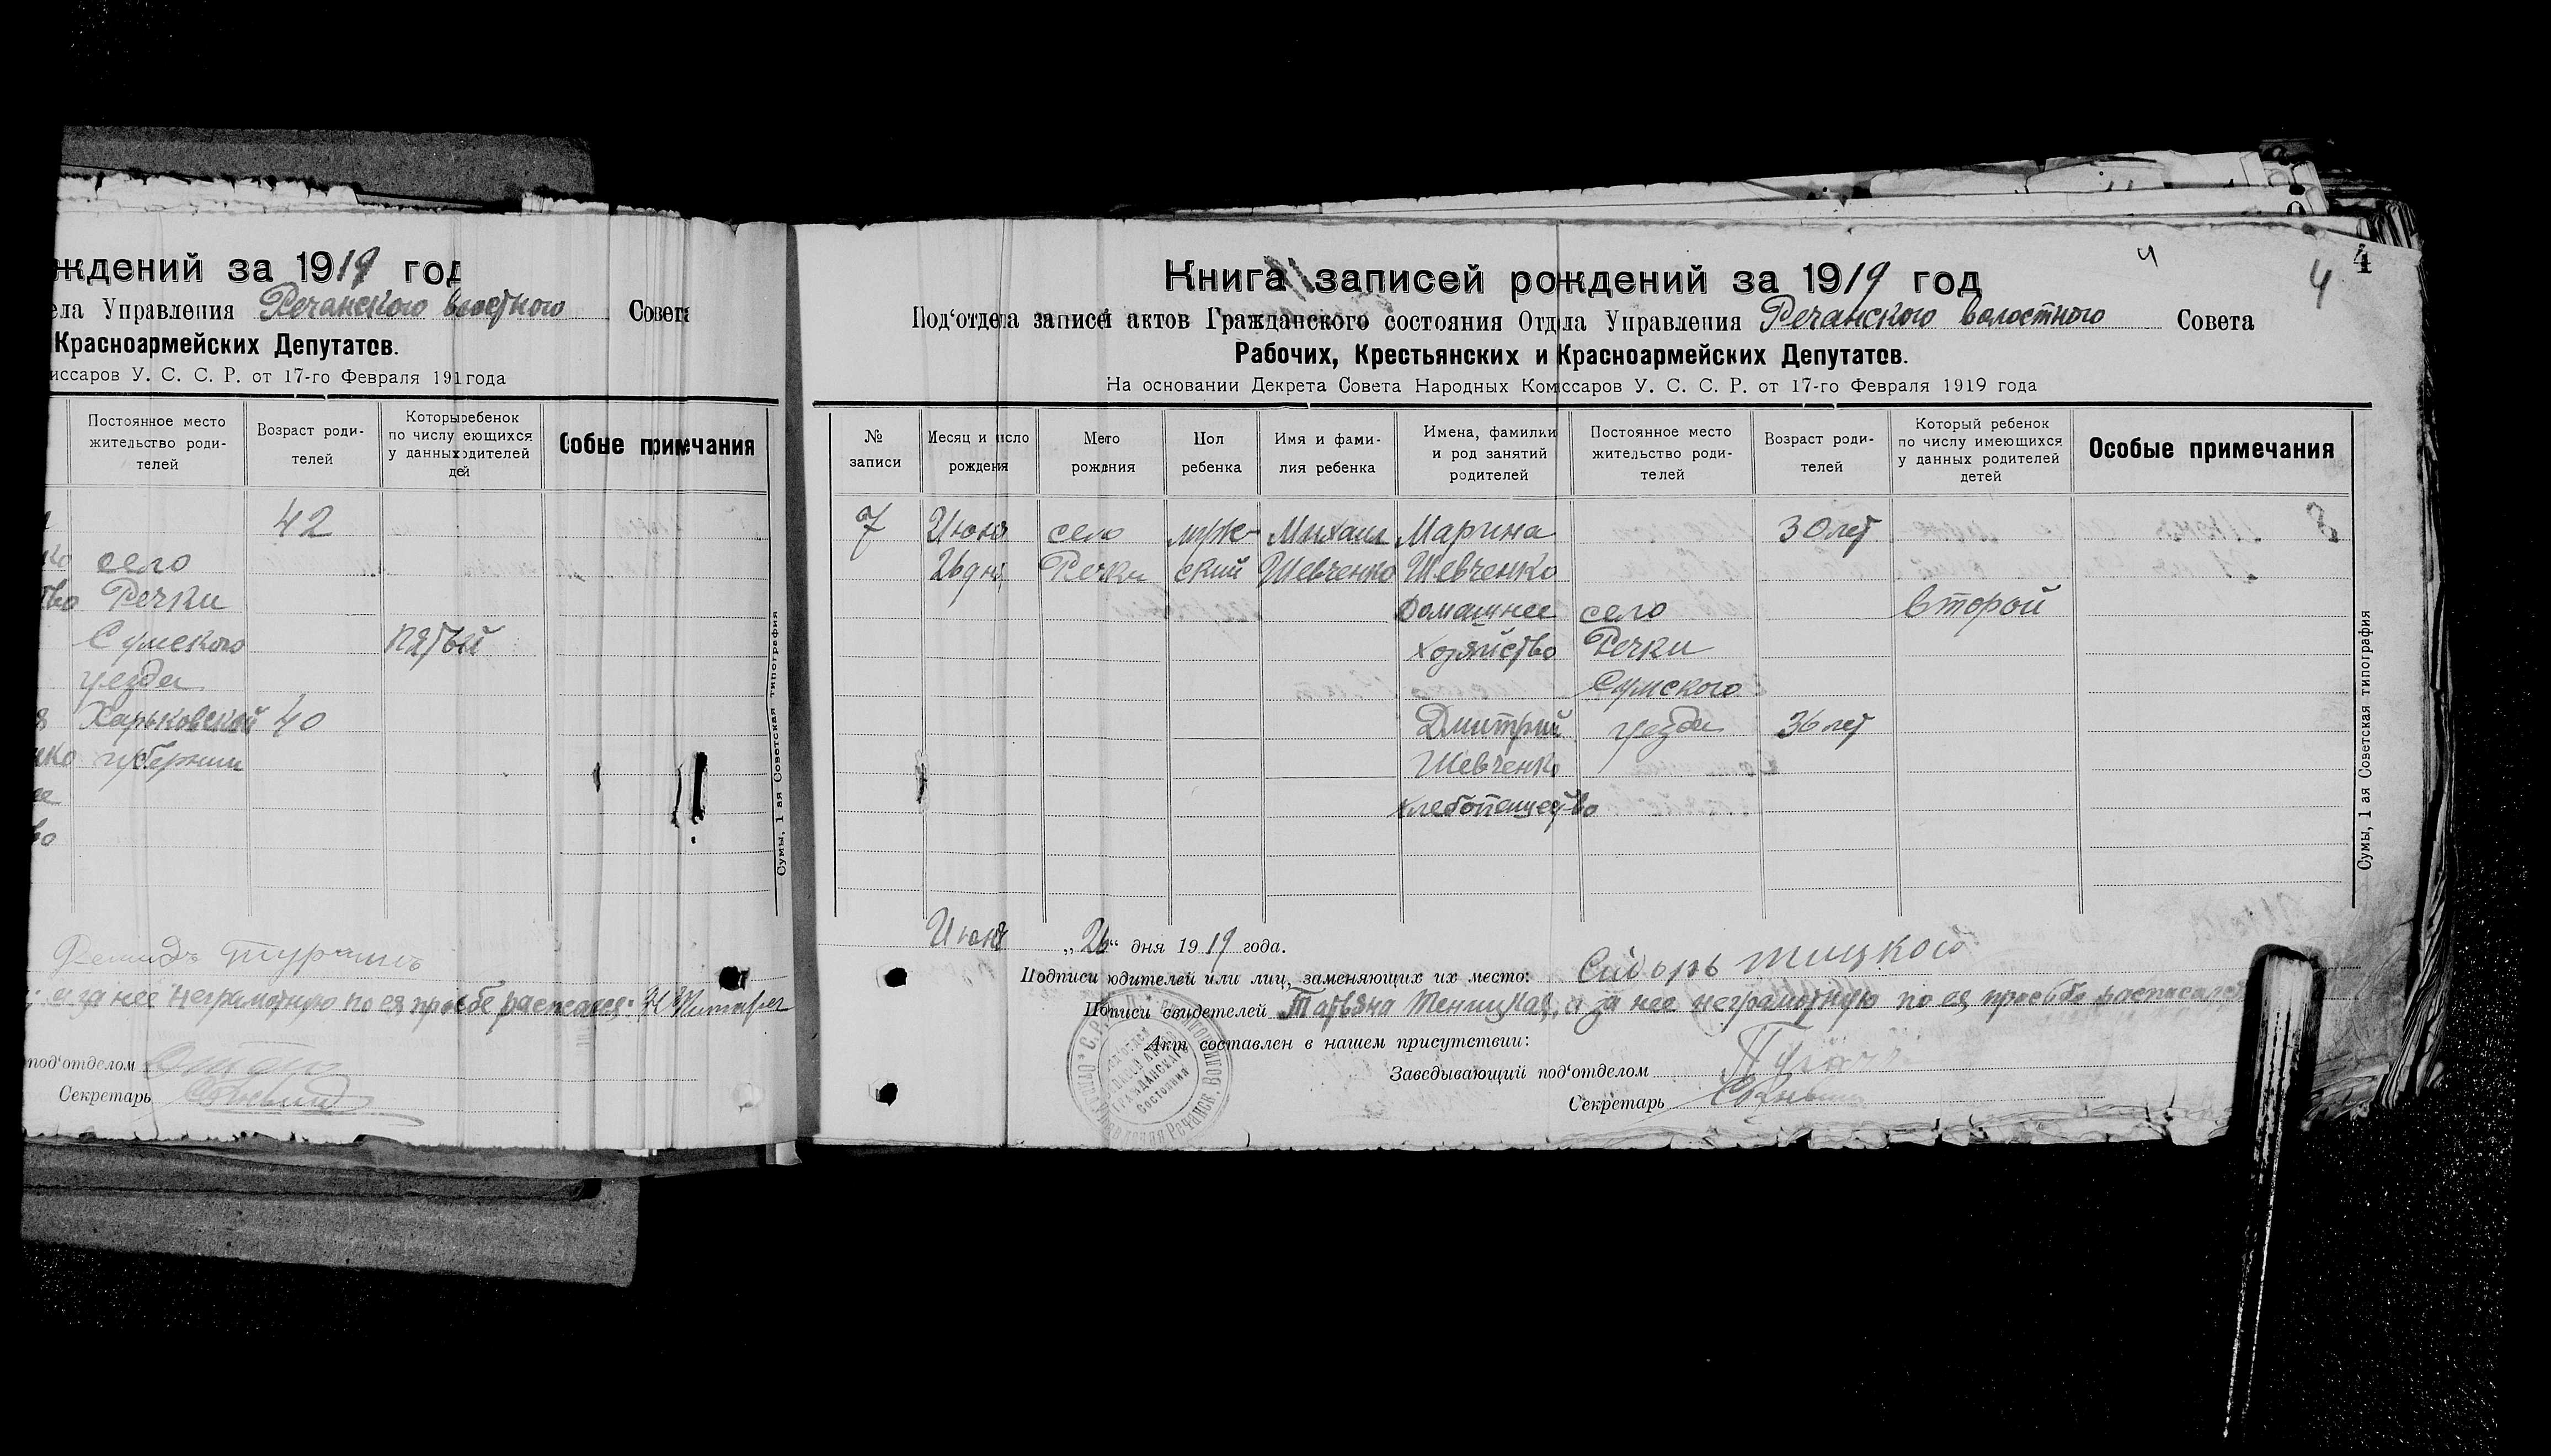 ждений за 1919 год
ела Управления Речанского волостного Совета
Красноармейских Депутатов.
иссаров У. С. С. Р. от 17-го Февраля 191 года
Постоянное место жительство роди-телей
Возраст роди-телей
Которы ребенок по числу еющихся у данных одителей дей
Собые примечания
42
село
Речки
Сумского
пятый
уезда
Харьковской 40
губернии
Сумы, 1 ая Советская типография
а за нее неграмотную по ея просьбе
под‘отделом
Секретарь
4
4
4
Книга записей рождений за 1919 год
Под‘отдела записей актов Гражданского состояния Отдела Управления Речанского волостного Совета
Рабочих, Крестьянских и Красноармейских Депутатов.
На основании Декрета Совета Народных Комиссаров У. С. С. Р. от 17-го Февраля 1919 года
№ записи
Месяц и число рождения
Место рождения
Пол ребенка
Имя и фами-лия ребенка
Имена, фамилии и род занятий родителей
Постоянное место жительство роди-телей
Возраст роди-телей
Который ребенок по числу имеющихся у данных родителей детей
Особые примечания
7 Июня село муж- Михаил Марина 30 лет
26 дня Речки ский Шевченко Шевченко
Домашнее село второй
хозяйство Речки
Сумского
Дмитрий уезда 36 лет
Шевченко
хлебопашество
Сумы, 1 ая Советская типография
Июня „26“ дня 1919 года.
Подписи родителей или лиц, заменяющих их место: Сидоръ
Подписи свидетелей Татьяна а за нее неграмотную по ея просьбе расписался
Акт составлен в нашем присутствии:
Заведывающий под‘отделом
Секретарь